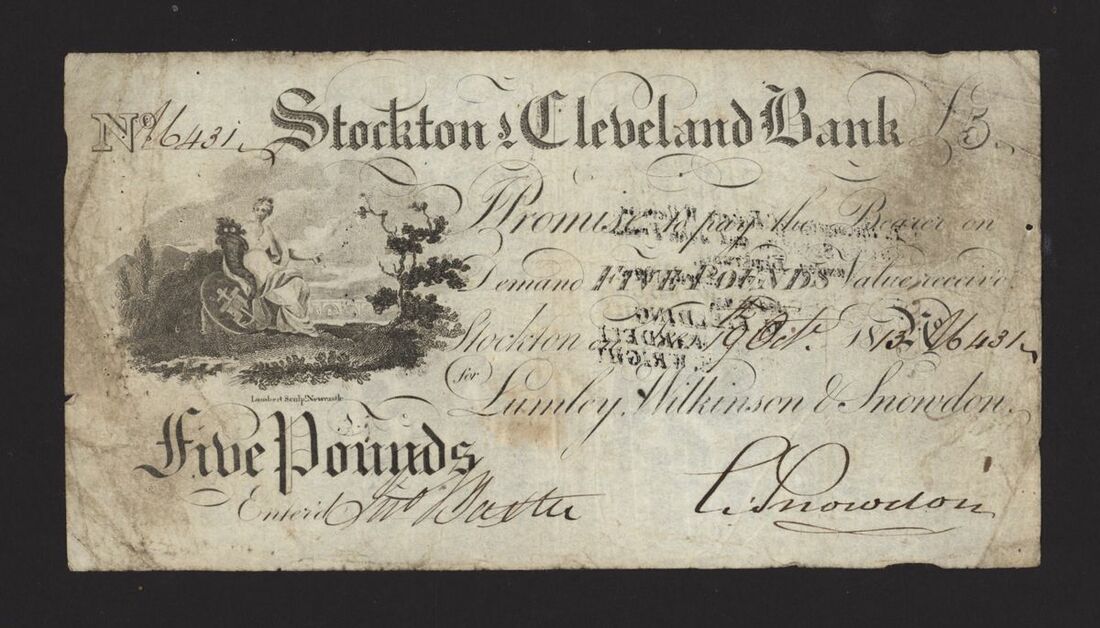 No A6431 Stockton & Cleveland Bank £5
I Promise to pay the Bearer on
Demand FIVE POUNDS Value receiv'd
Stockton 19 Oct. 1813 No A6431
for Lumley, Wilkinson & Snowdon.
Lambert Sculpt. Newcastle
Five Pounds
Enter'd Jno Baxter
C. Snowdon